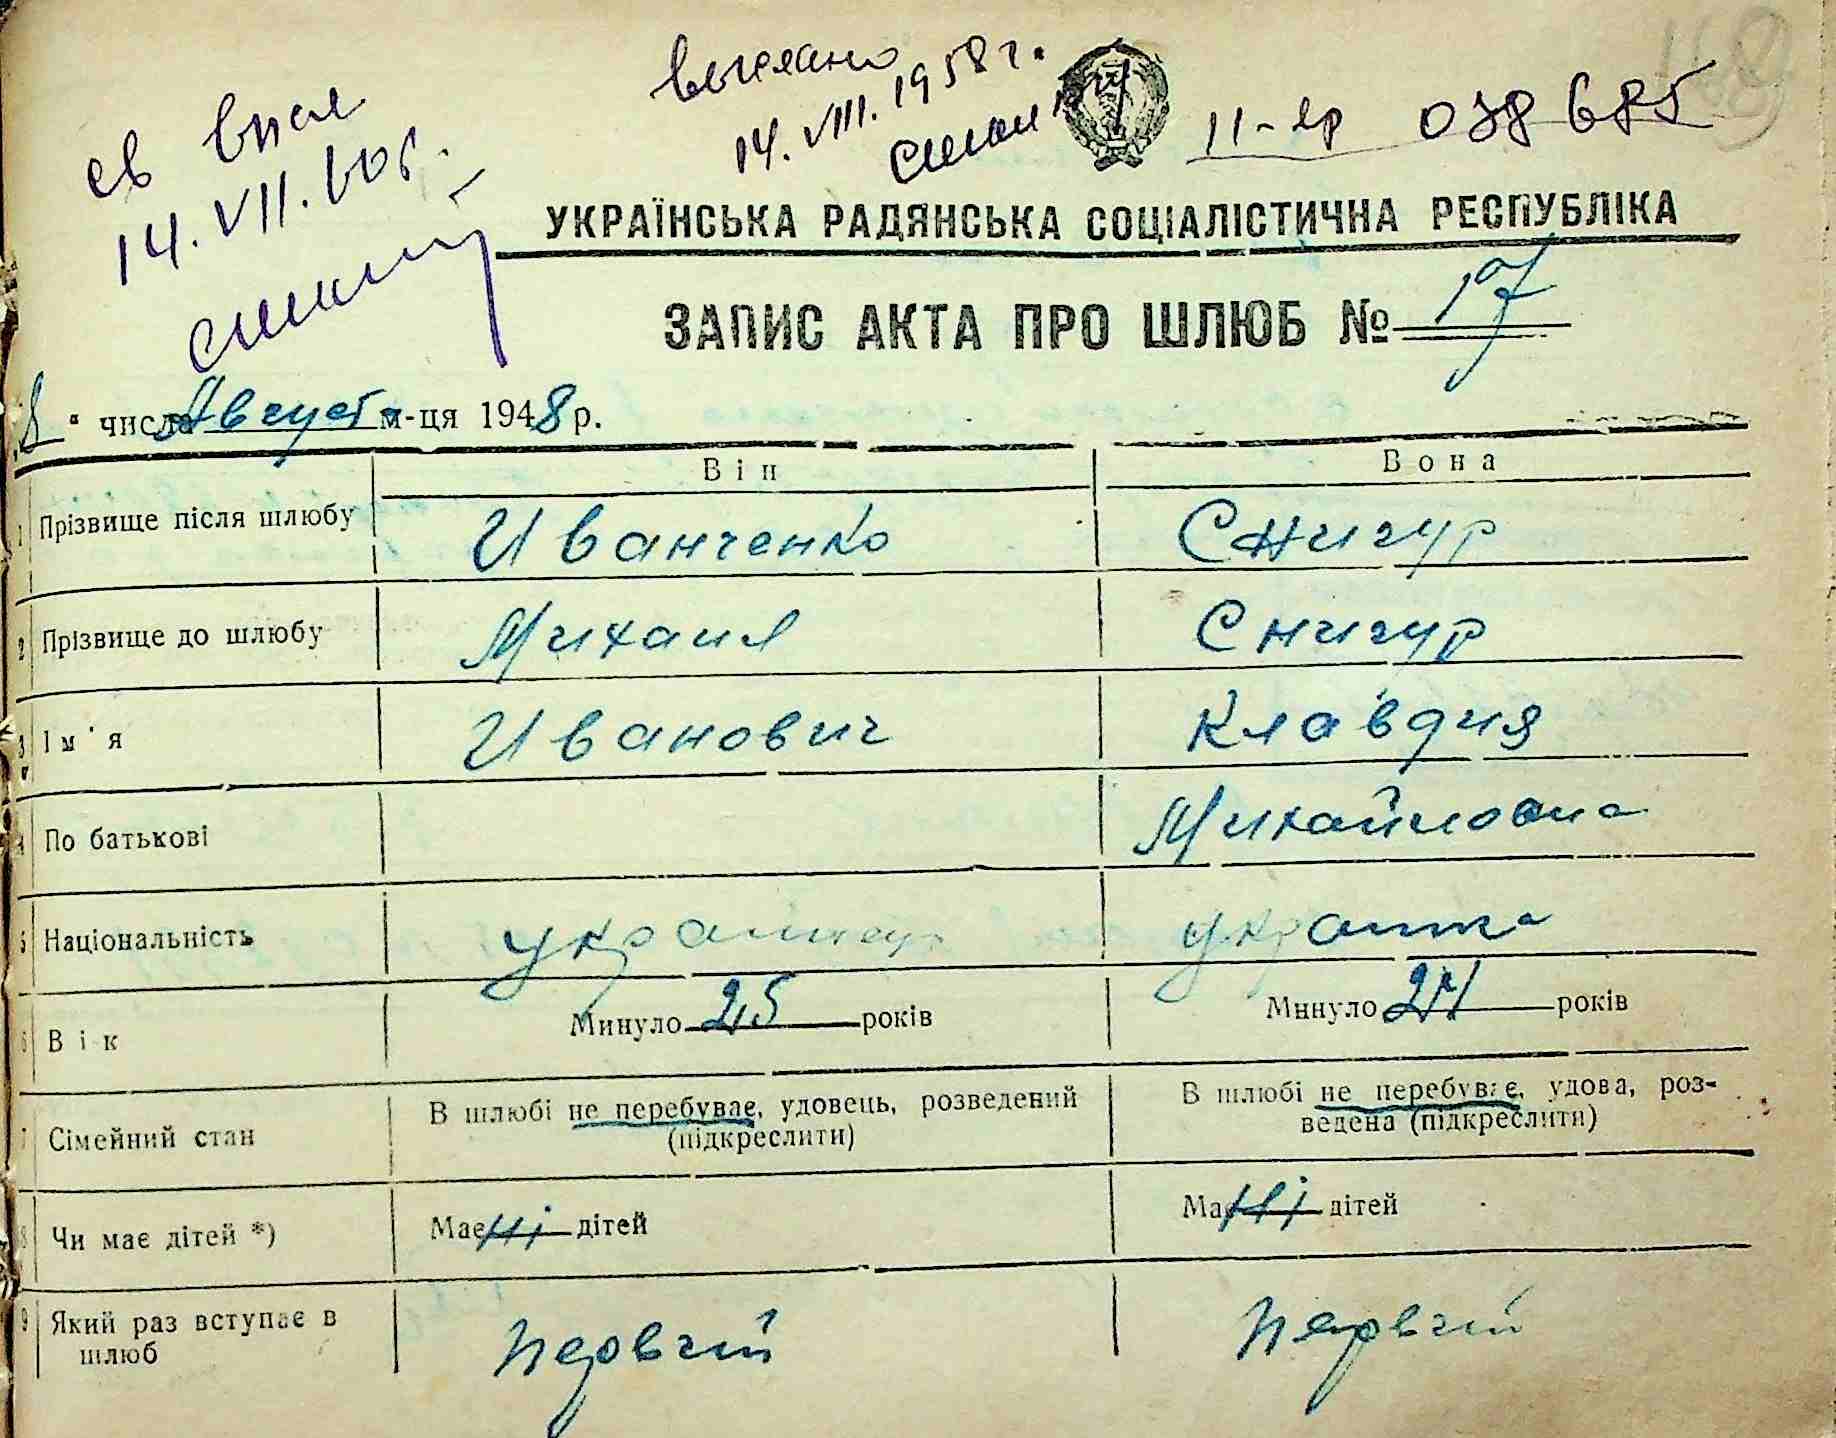 выслано
14. VIII. 1958 г.
14. VII. 60 г.
038685
УКРАЇНСЬКА РАДЯНСЬКА СОЦІАЛІСТИЧНА РЕСПУБЛІКА
ЗАПИС АКТА ПРО ШЛЮБ № 17
„8" числа Августа м-ця 1948 р.
Він Вона
1 Прізвище після шлюбу Иванченко Снигур
2 Прізвище до шлюбу Михаил Снигур
3 Ім'я Иванович Клавдия
4 По батькові Михайловна
5 Національність украинец украинка
6 Вік Минуло 25 років Минуло 21 років
7 Сімейний стан В шлюбі не перебуває, удовець, розведений (підкреслити) В шлюбі не перебуває, удова, роз-
ведена (підкреслити)
8 Чи має дітей *) Має ні дітей Має ні дітей
9 Який раз вступає в шлюб первий первий